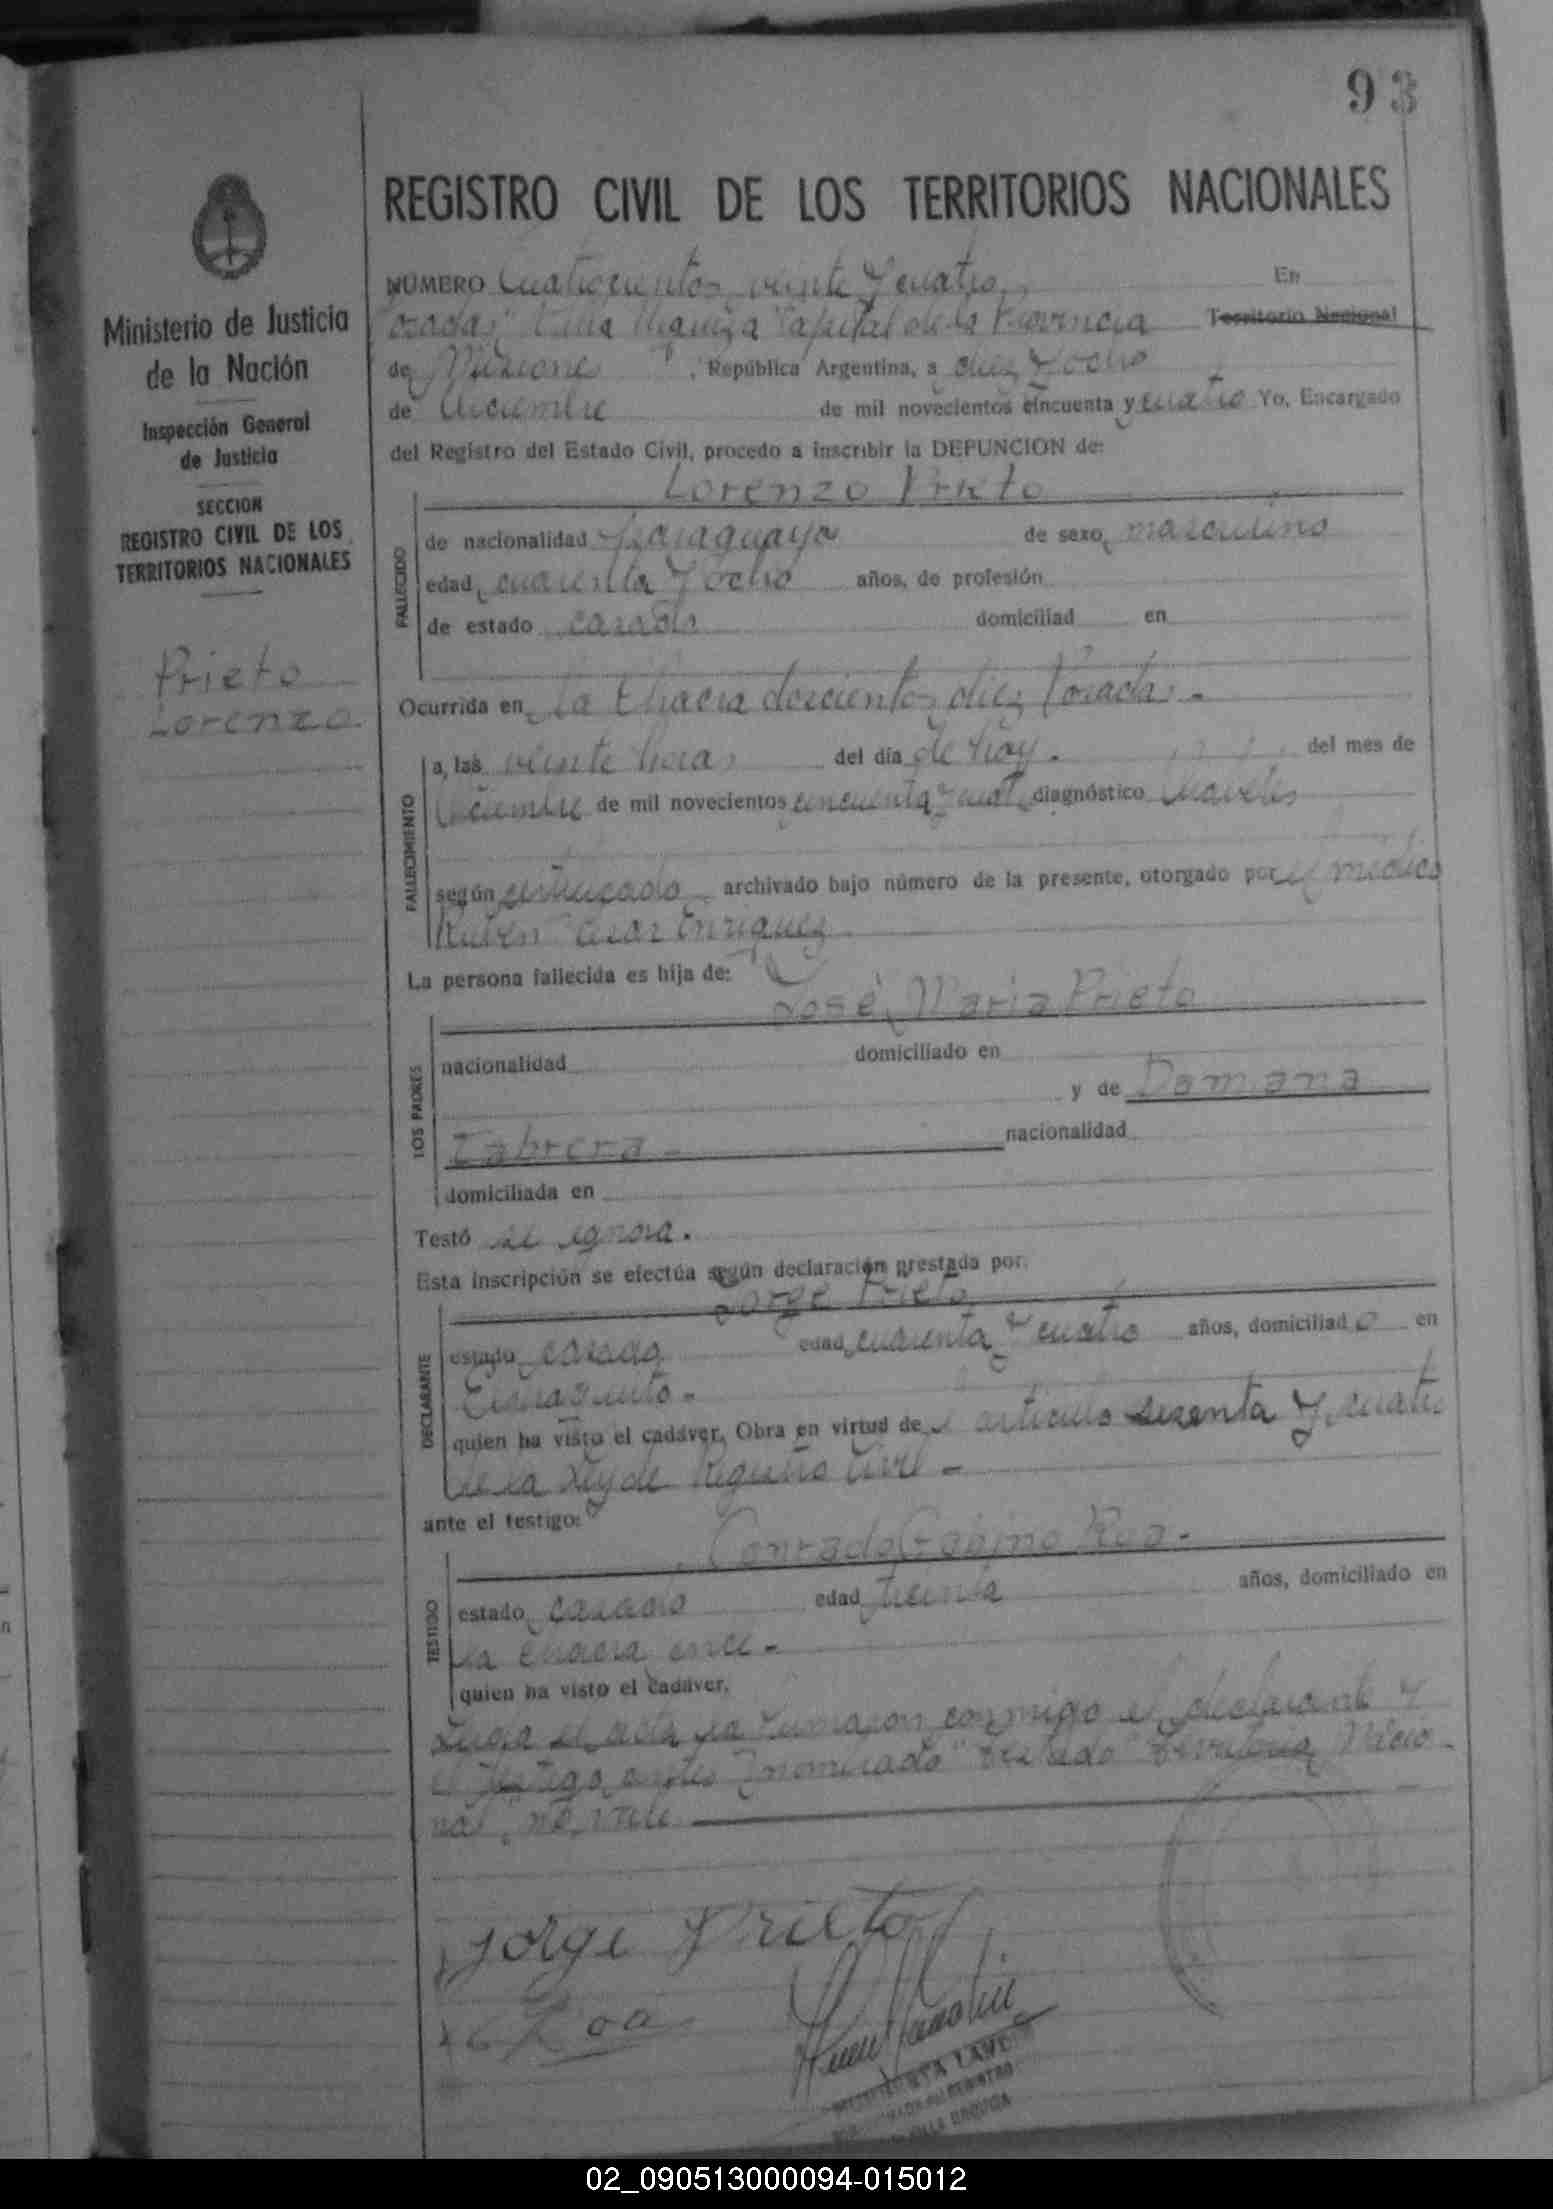 93
REGISTRO CIVIL DE LOS TERRITORIOS NACIONALES
Ministerio de Justicia
de la Nación
Inspección General
de Justicia
SECCION
REGISTRO CIVIL DE LOS
TERRITORIOS NACIONALES
Prieto
Lorenzo
NUMERO Cuatrocientos veinte y cuatro En
osadas, Villa Urquiza Capital de la Provincia Territorio Nacional
de Misiones, República Argentina, a diez y ocho
de diciembre de mil novecientos cincuenta y cuatro Yo, Encargado
del Registro del Estado Civil, procedo a inscribir la DEFUNCION de:
Lorenzo Prieto
FALLECIDO
de nacionalidad paraguaya de sexo masculino
edad cuarenta y ocho años, de profesión
de estado casado domiciliad en
Ocurrida en la Chacra doscientos diez Posadas.-
FALLECIMIENTO
a las veinte horas del día de hoy. del mes de
diciembre de mil novecientos cincuenta y cuat diagnóstico
según certificado archivado bajo número de la presente, otorgado por el médico
Rubén Cesar Enriquez
La persona fallecida es hija de:
José Maria Prieto
LOS PADRES
nacionalidad domiciliado en
y de Damana
Cabrera - nacionalidad
domiciliada en
Testó se ignora.
Esta inscripción se efectúa según declaración prestada por:
Jorge Prieto
DECLARANTE
estado casado edad cuarenta y cuatro años, domiciliado en
quien ha visto el cadáver. Obra en virtud del artículo sesenta y cuatro
de la Ley de Registro Civil -
ante el testigo:
Conrado Gabino Roa.-
TESTIGO
estado casado edad treinta años, domiciliado en
la chacra once -
quien ha visto el cadáver.
Leida el acta la firmaron conmigo el declarante y
el testigo antes nombrado "testado" Territorio Nacio-
nal, no vale
Jorge Prieto
C Roa
VILLA URQUIZA
02_090513000094-015012